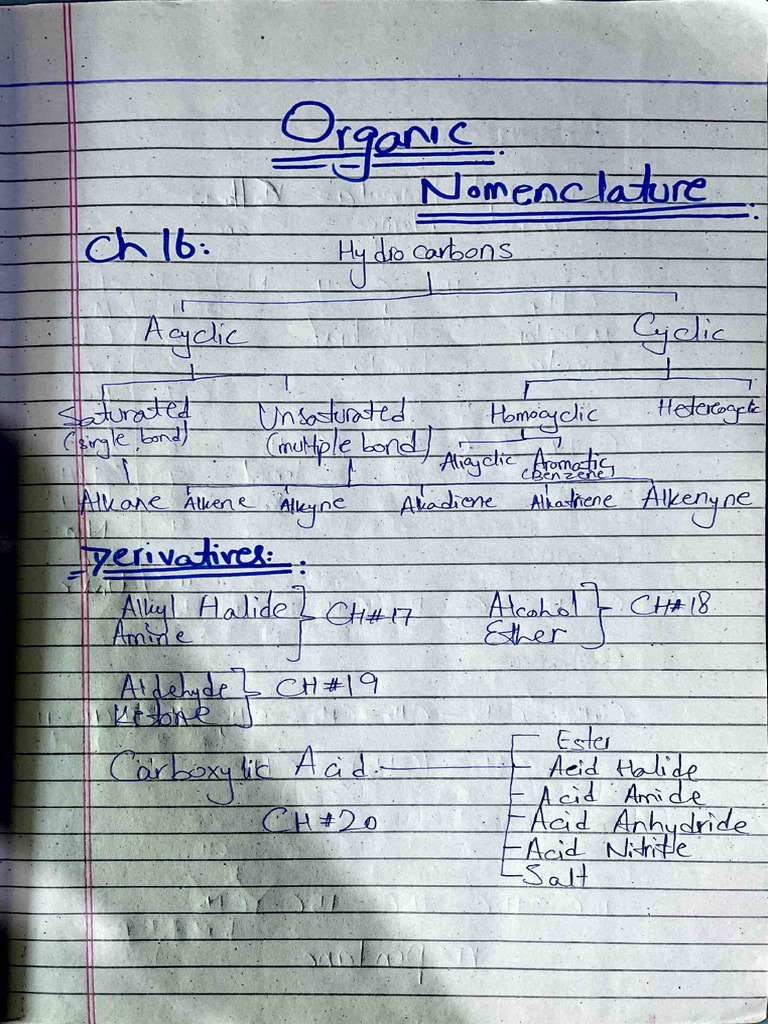 Organic
Nomenclature
Ch 16:
Hydrocarbons
Acyclic Cyclic
Saturated Unsaturated Homocyclic Hetereocyclic
(single bond) (multiple bond) Alicyclic Aromatic
(Benzene)
Alkane Alkene Alkyne Alkadiene Alkatriene Alkenyne
Derivatives:
Alkyl Halide CH#17 Alcohol CH#18
Amine Ether
Aldehyde CH#19
Ketone
Ester
Carboxylic Acid Acid Halide
Acid Amide
CH#20 Acid Anhydride
Acid Nitrile
Salt